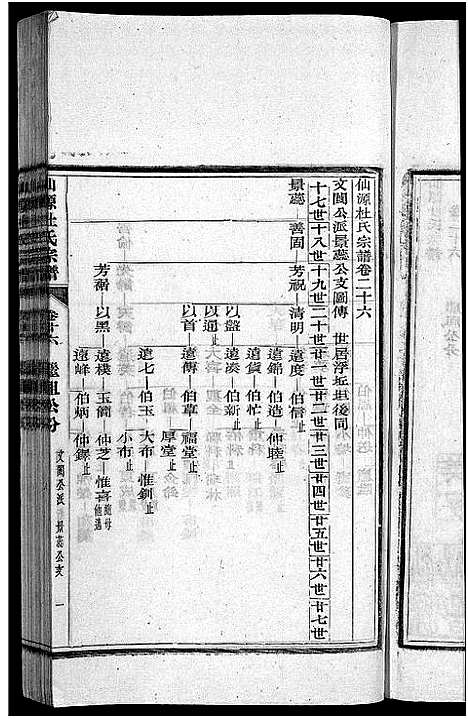 仙源杜氏宗譜卷二十六
文閣公派景蕊公支圖傳　世居浮坵坦後同
十七世十八世十九世二十世廿一世廿二世廿三世廿四世廿五世廿六世廿七世
景蕊 善固 芳祝 清明 遠度 伯信止
遠錦 伯造 仲睦止
遠貨 伯忙止
以盤 遠湊 伯新止
以通止
以首 遠傳 伯草 福堂止
厚堂止
遠七 伯玉 大布 惟釗止
小布止
芳蕎 以黑 玉簡 仲芝 惟喜隨母他適
遠樸
遠峰 伯炳 仲鐸止
仙源杜氏宗譜
文閣公派 景蕊公支 一